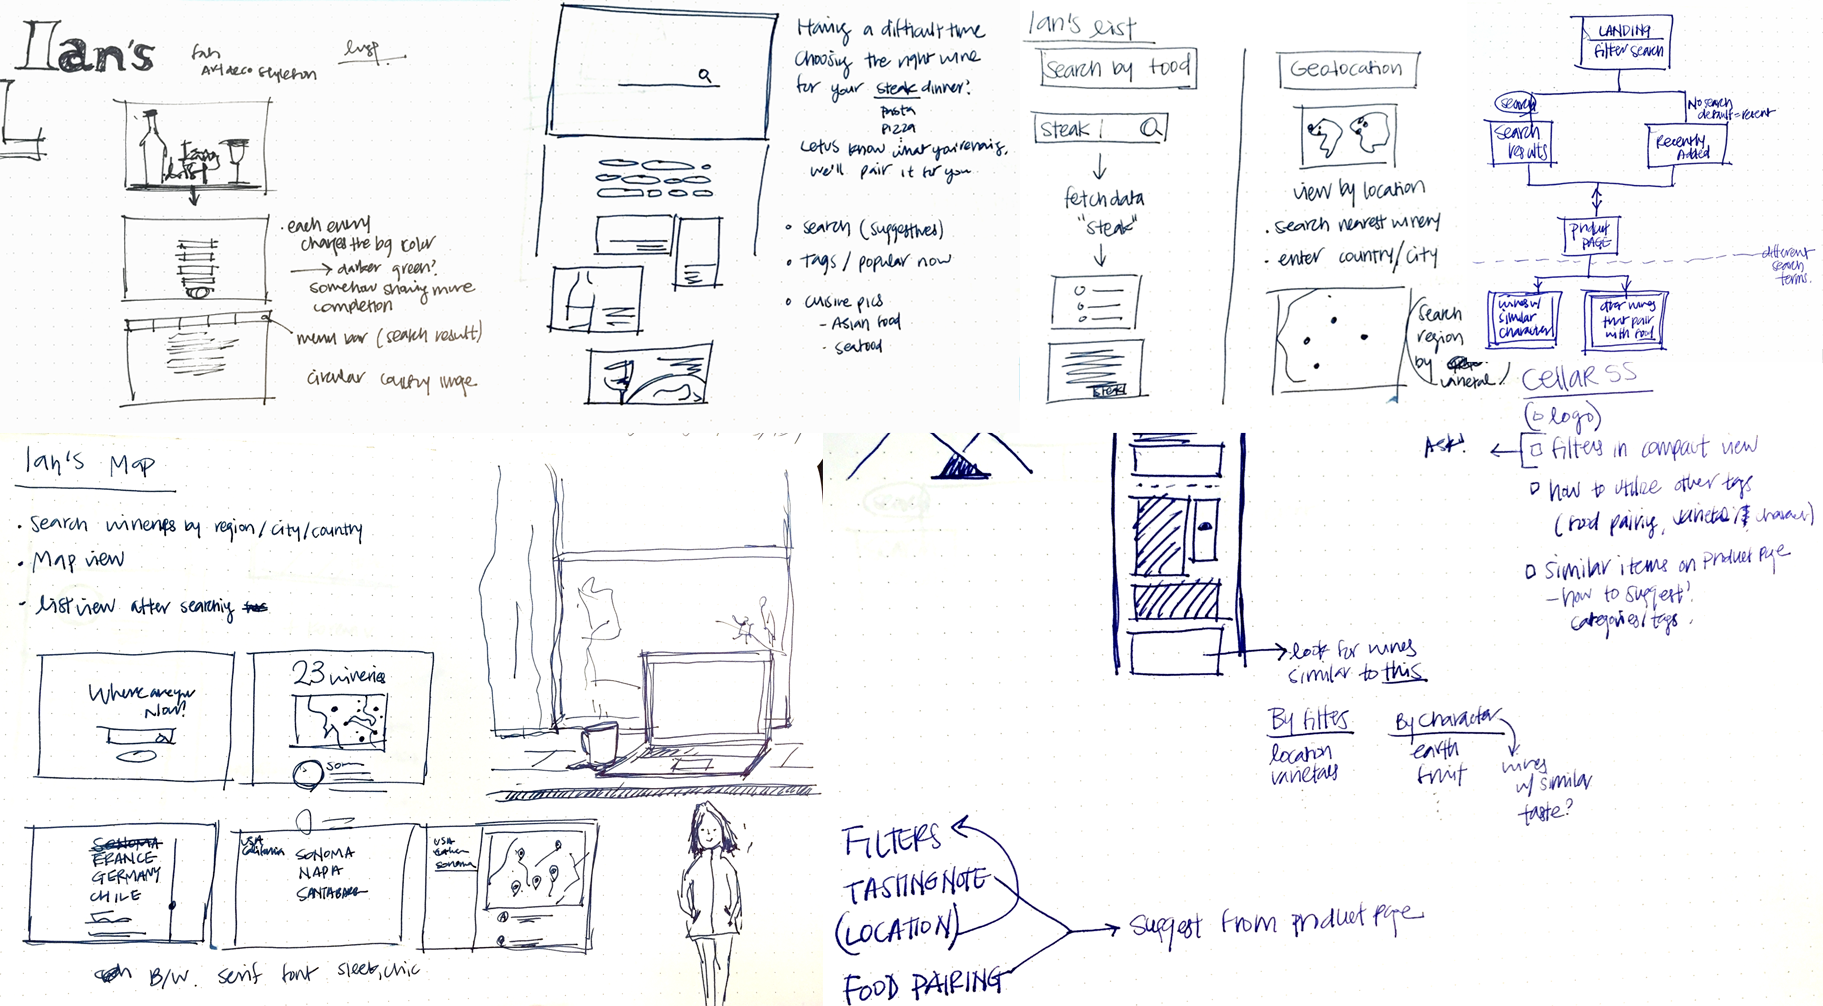 Ian's
Art deco
Ian's
List
each entry
changes the bg color
→ darker green?
somehow showing more
completion
menu bar (search result)
circular country image
Having a difficult time
choosing the right wine
for your steak dinner?
pasta
pizza
Let us know what you're having,
we'll pair it for you.
search (suggestives)
tags / popular now
cuisine pics
- Asian food
- seafood
Ian's list
Search by food
steak |
fetch data
"steak"
steak
Geolocation
view by location
search nearest winery
enter country/city
search
region
by
varietal
LANDING
filter search
search
search
results
No search
default = recent
Recently
Added
product
PAGE
different
search
terms.
wines w/
similar
character
other wines
that pair
with food
Cellar 55
(logo)
Ask!
filters in compact view
how to utilize other tags
(food pairing,
similar items on product page
- how to suggest?
categories/tags.
Ian's Map
search wineries by region/city/country
Map view
list view after searching
Where are you
Now?
23 wineries
SONOMA
FRANCE
GERMANY
CHILE
USA
California
SONOMA
NAPA
SANTA BARB
USA
Sonoma
B/W. serif font sleek, chic
look for wines
similar to this
By filters
location
varietals
By character
earth
fruit
wines
w/ similar
taste?
FILTERS
TASTING NOTE
(LOCATION)
FOOD PAIRING
suggest from product page